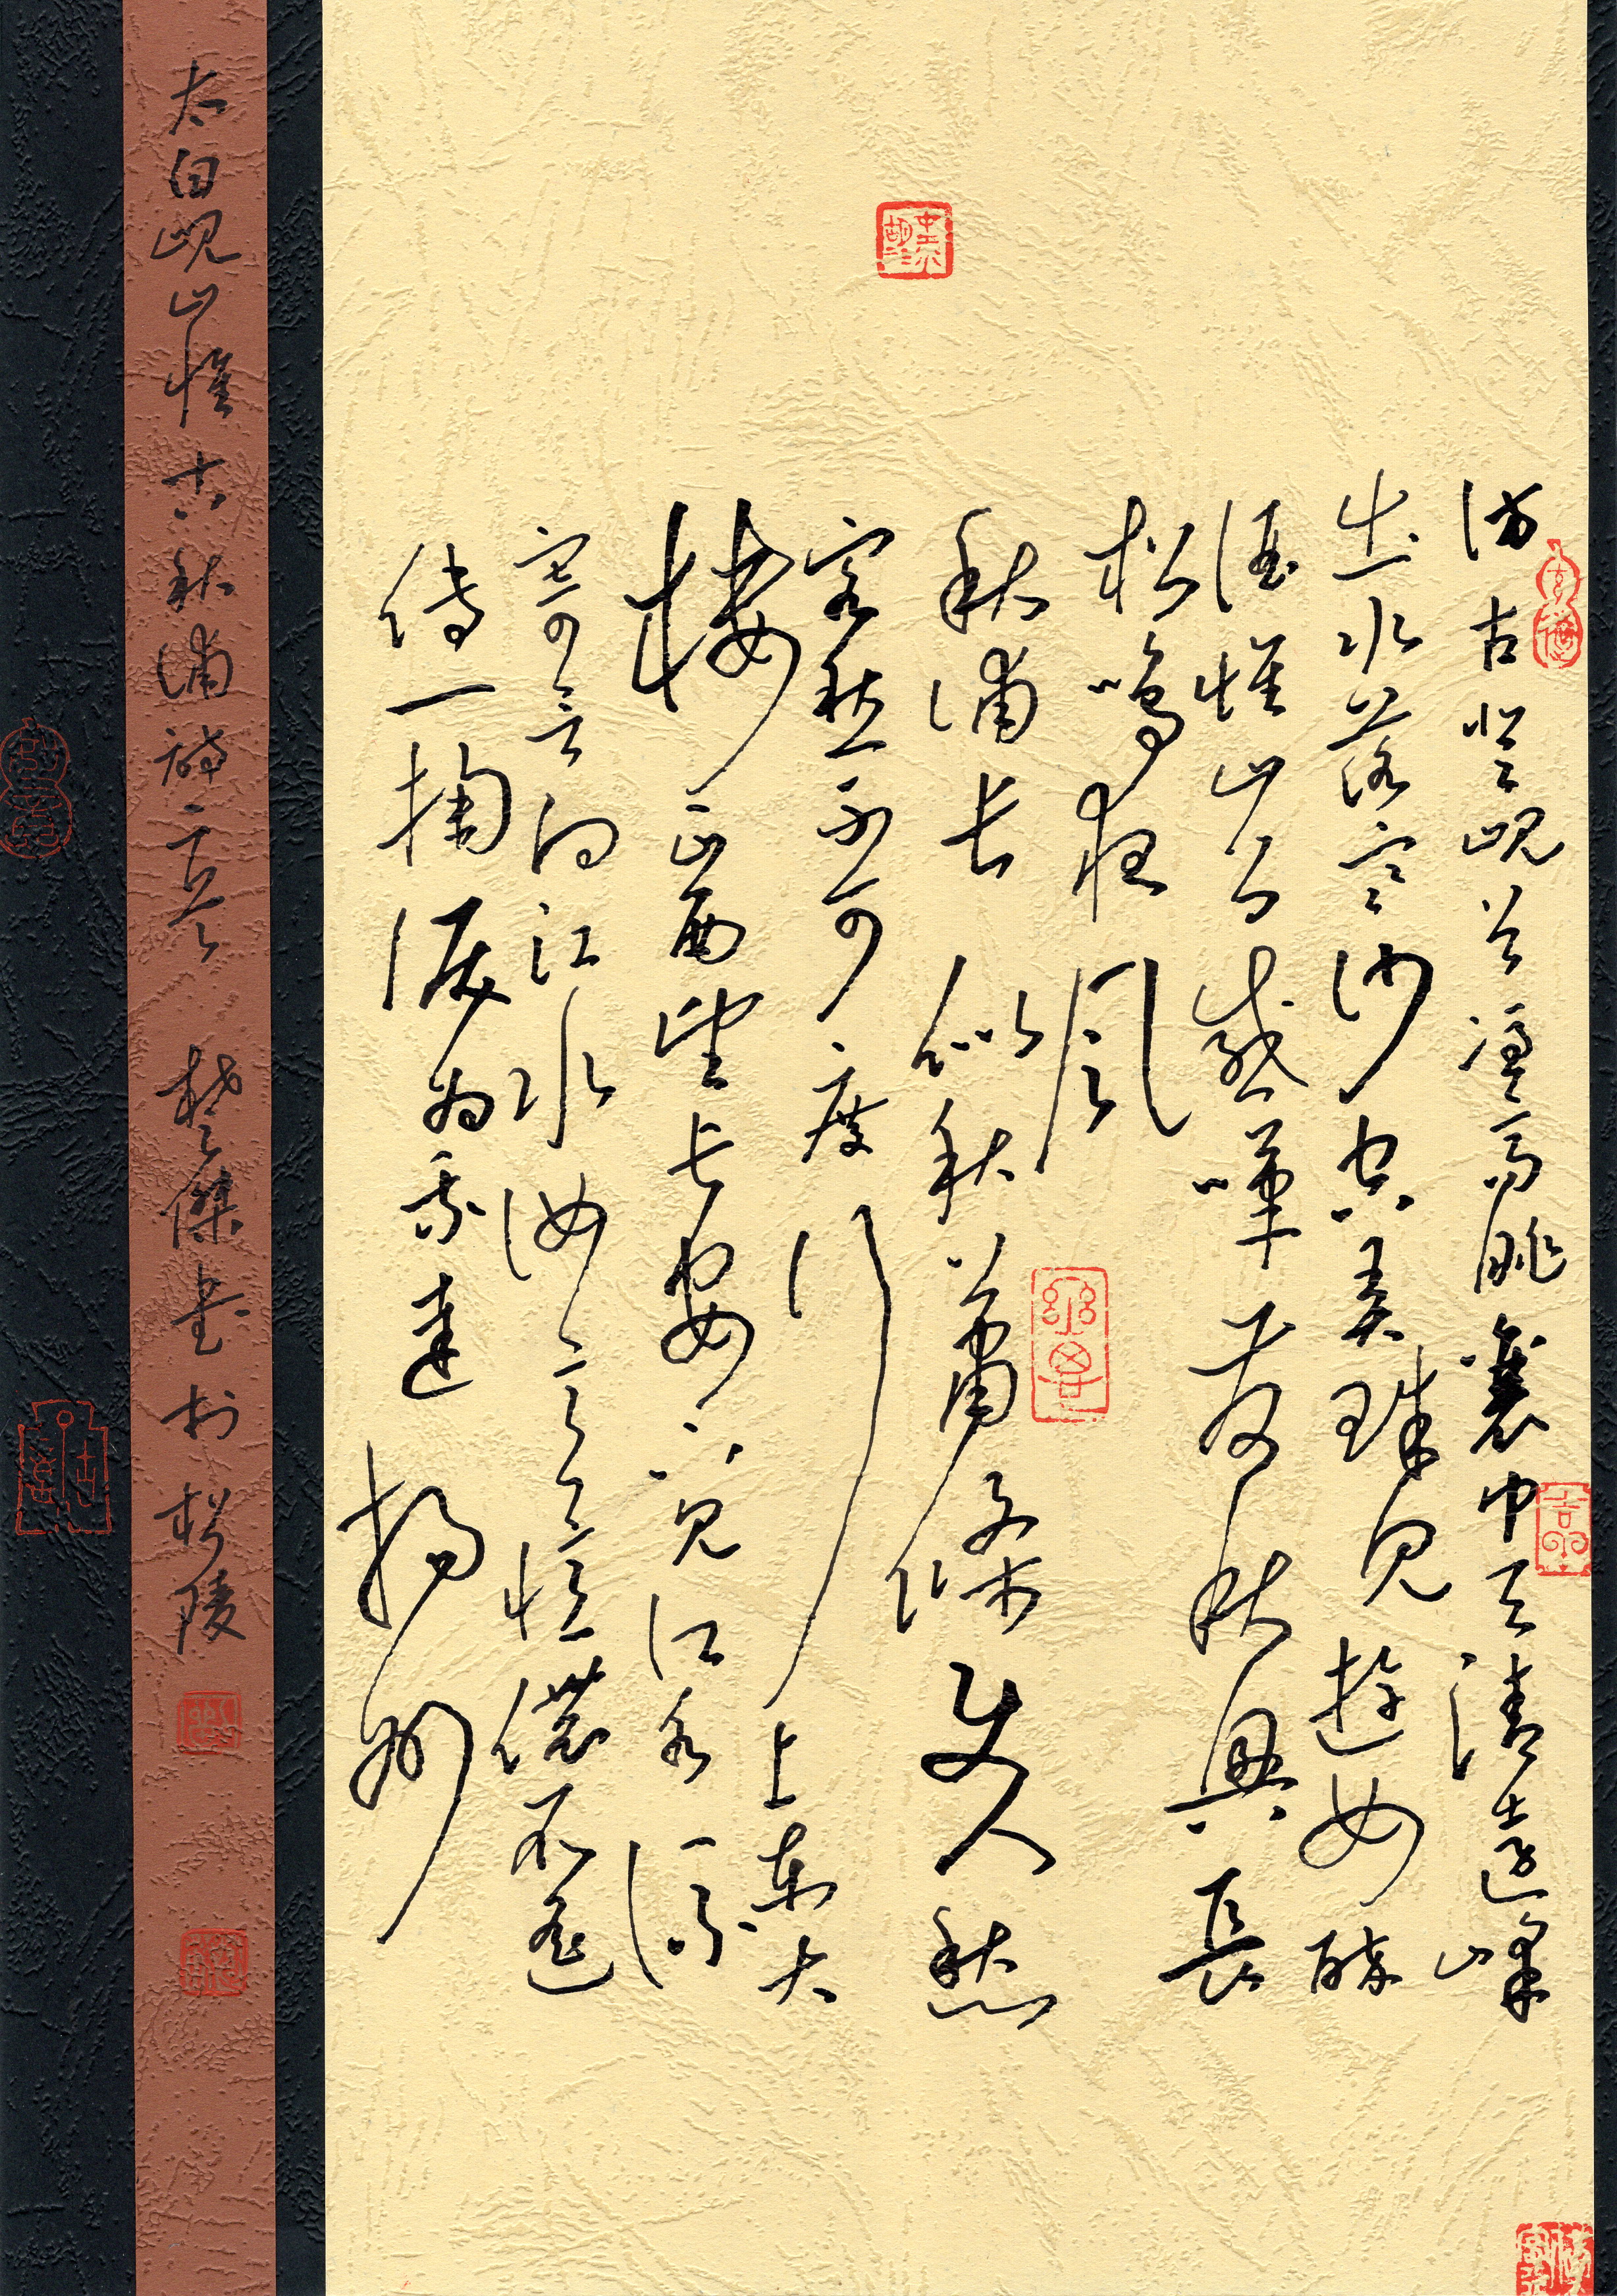 訪古登峴首憑高眺襄中天清遠峰
出水落寒沙空弄珠見遊女醉
酒懷山公感嘆發秋興長
松鳴夜風
秋浦长似秋蕭條使人愁
客愁不可度行上東大
樓正西望长安下見江水流
寄言向江水汝意憶儂不遙
傳一掬淚為我達揚州
太白峴山懷古秋浦詩二首 楚傑書於松陵